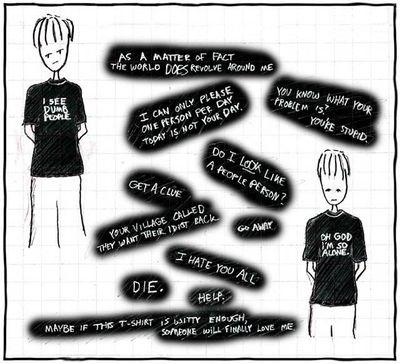 I SEE
DUMB
PEOPLE.
AS A MATTER OF FACT
THE WORLD DOES REVOLVE AROUND ME
I CAN ONLY PLEASE
ONE PERSON PER DAY
TODAY IS NOT YOUR DAY.
YOU KNOW WHAT YOUR
PROBLEM IS?
YOU'RE STUPID.
DO I LOOK LIKE
A PEOPLE PERSON?
GET A CLUE
YOUR VILLAGE CALLED
THEY WANT THEIR IDIOT BACK
GO AWAY.
I HATE YOU ALL
DIE.
HELP.
MAYBE IF THIS T-SHIRT IS WITTY ENOUGH,
SOMEONE WILL FINALLY LOVE ME.
OH GOD
I'M SO
ALONE.